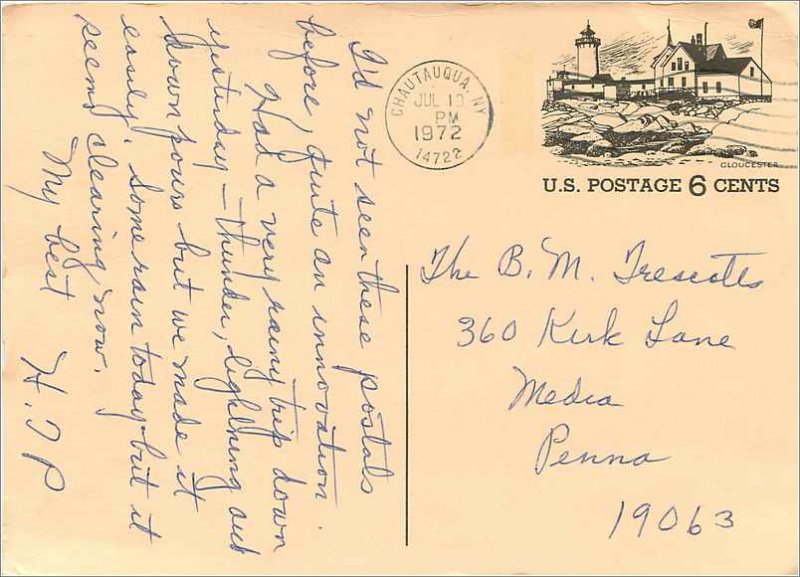 I'd not seen these postals
before, quite an innovation.
Had a very rainy trip down
yesterday – thunder, lightning and
down pours but we made it
easily. Some rain today but it
seems clearing now.
My best H. T P
CHAUTAUQUA, NY
JUL 10
PM
1972
14722
GLOUCESTER
U.S. POSTAGE 6 CENTS
The B. M. Trescotts
360 Kirk Lane
Media
Penna
19063